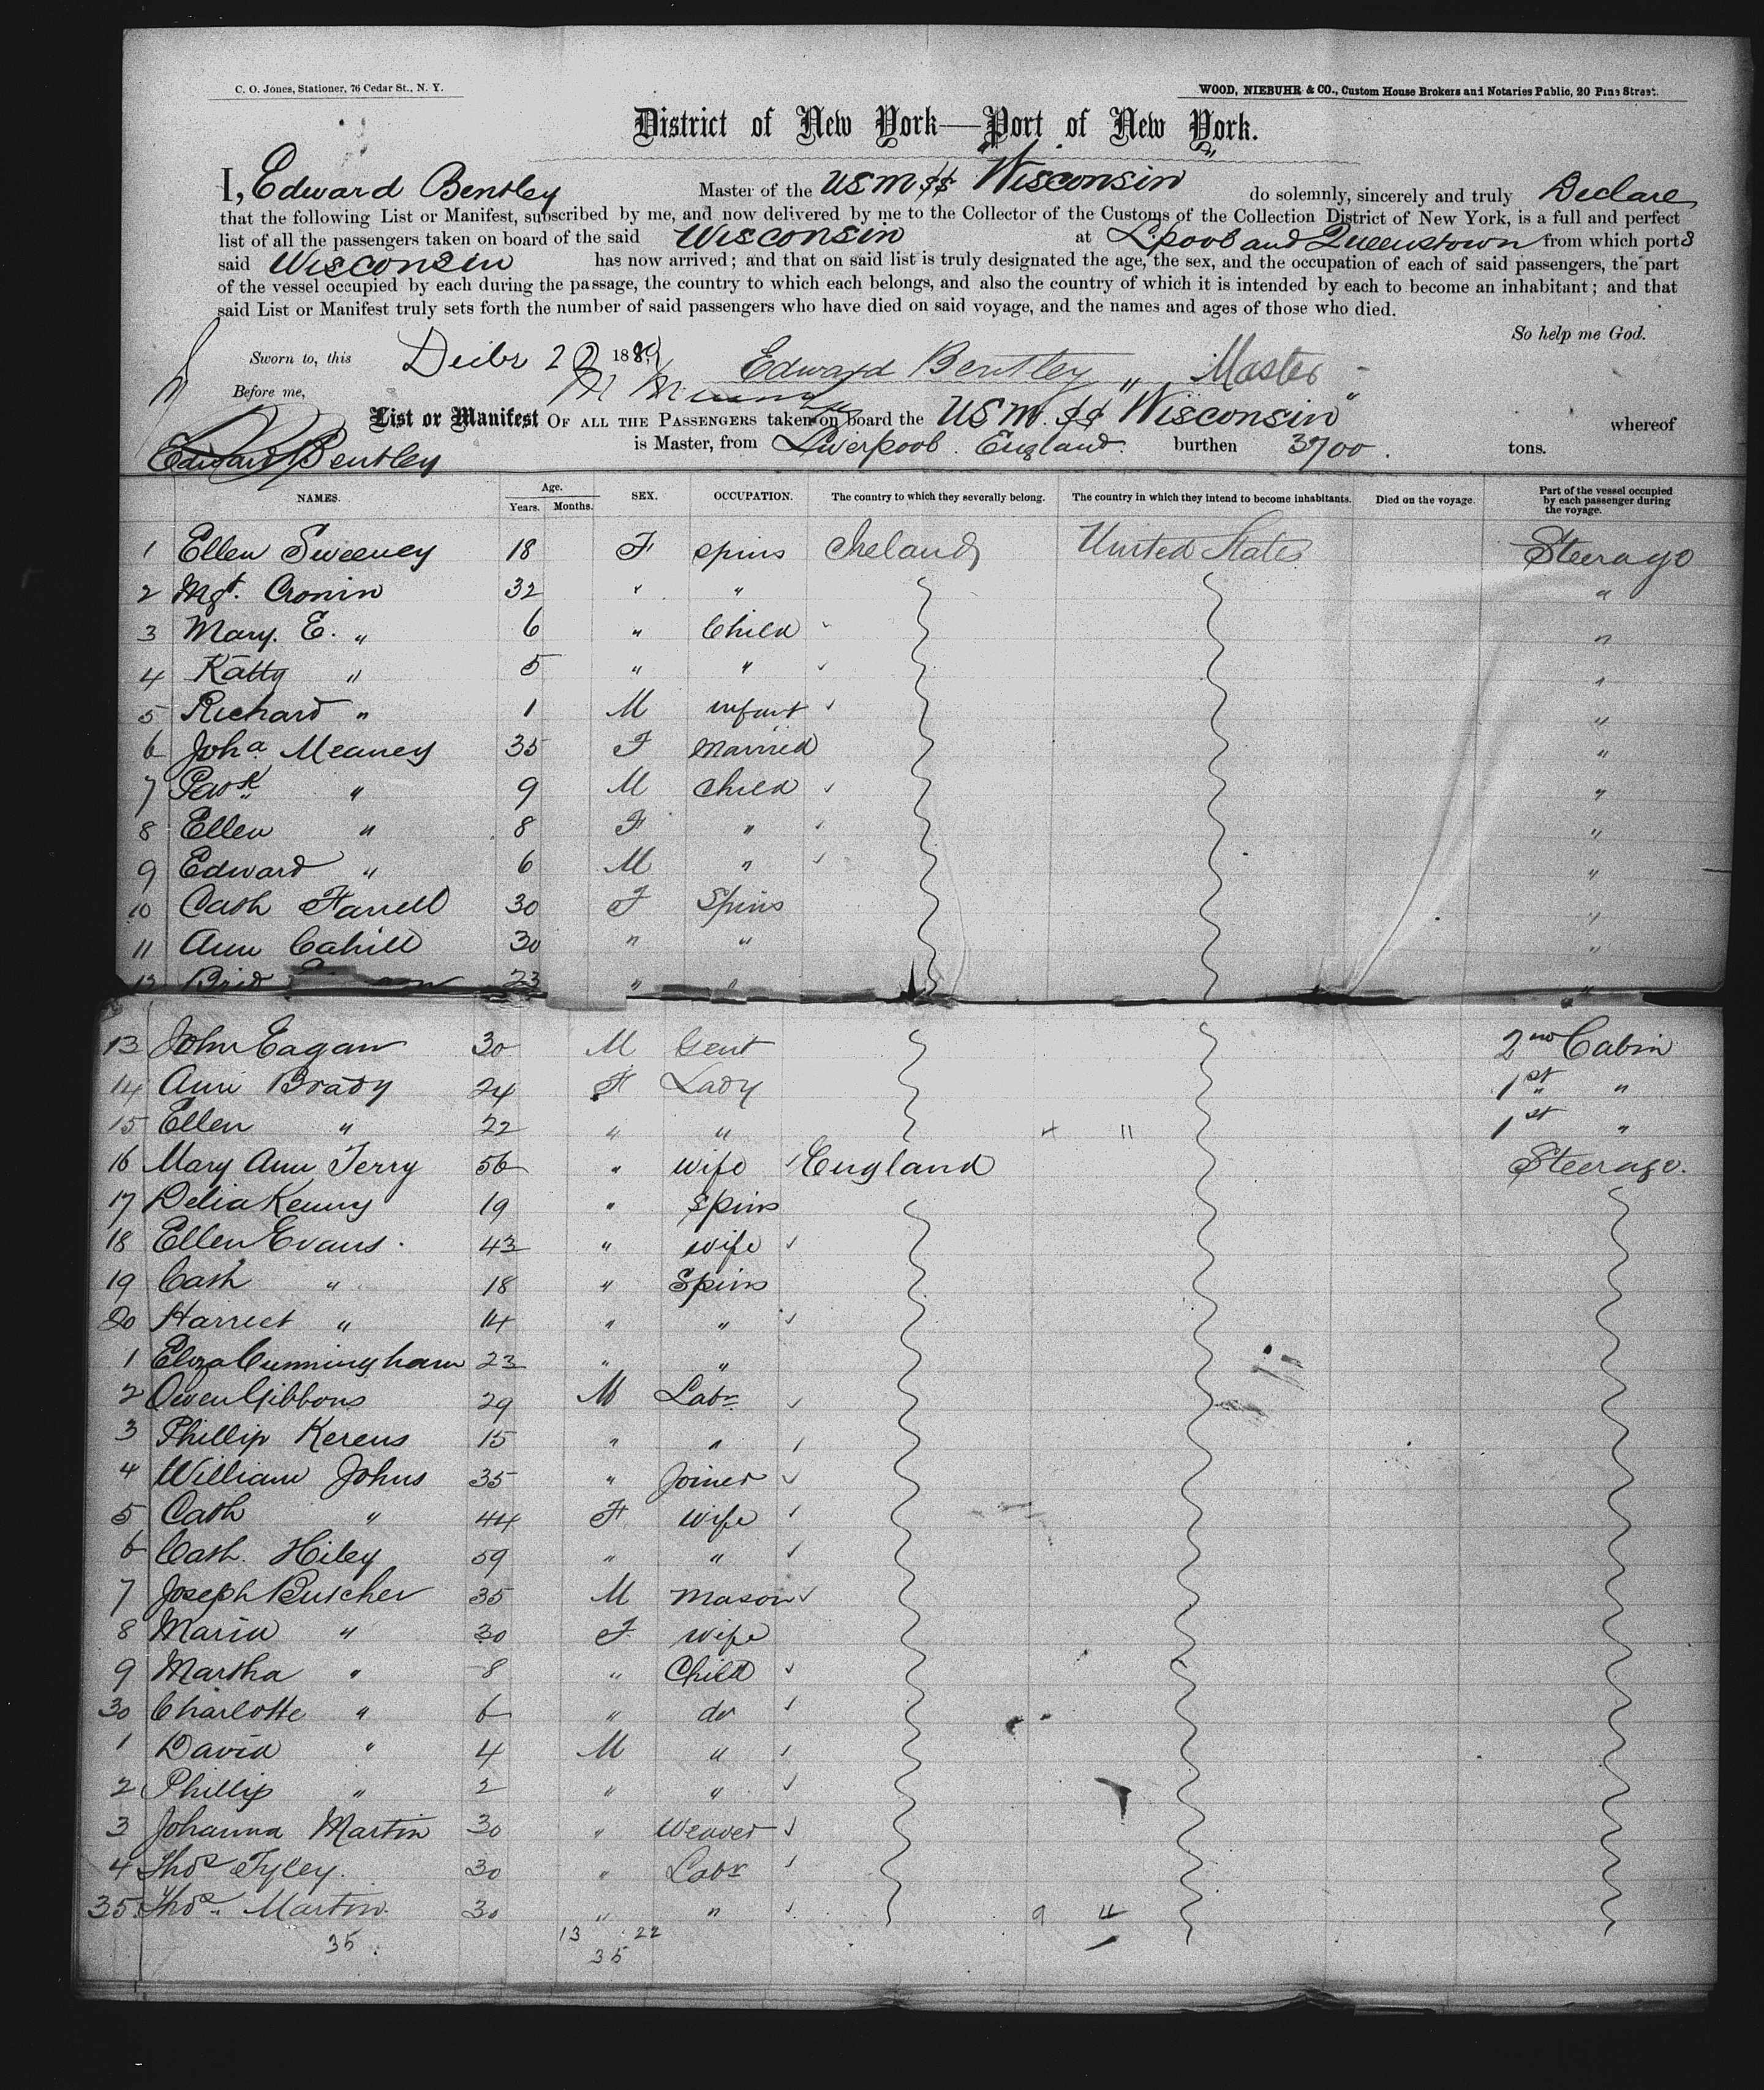 C. O. Jones, Stationer, 76 Cedar St., N. Y.
WOOD, NIEBUHR & CO., Custom House Brokers and Notaries Public, 20 Pine Street.
District of New York—Port of New York.
I, Edward Bentley Master of the USM SS "Wisconsin" do solemnly, sincerely and truly Declare
that the following List or Manifest, subscribed by me, and now delivered by me to the Collector of the Customs of the Collection District of New York, is a full and perfect
list of all the passengers taken on board of the said Wisconsin at L.pool and Queenstown from which ports
said Wisconsin has now arrived; and that on said list is truly designated the age, the sex, and the occupation of each of said passengers, the part
of the vessel occupied by each during the passage, the country to which each belongs, and also the country of which it is intended by each to become an inhabitant; and that
said List or Manifest truly sets forth the number of said passengers who have died on said voyage, and the names and ages of those who died.
So help me God.
Sworn to, this Decbr 22 1889
Edward Bentley " Master
Before me,
List or Manifest OF ALL THE PASSENGERS taken on board the USM. SS Wisconsin" whereof
Edward Bentley is Master, from Liverpool. England. burthen 3700. tons.
NAMES. Age. Years. Months. SEX. OCCUPATION. The country to which they severally belong. The country in which they intend to become inhabitants. Died on the voyage. Part of the vessel occupied by each passenger during the voyage.
1 Ellen Sweeney 18 F spins Ireland United States Steerage
2 Mgt. Cronin 32 " " "
3 Mary. E. " 6 " Child "
4 Katty " 5 " " "
5 Richard " 1 M infant "
6 Joha Meaney 35 F Married "
7 Patk " 9 M Child "
8 Ellen " 8 F " "
9 Edward " 6 M " "
10 Cath Farrell 30 F Spins "
11 Ann Cahill 30 " " "
12 Brid 23 " " "
13 John Eagan 30 M Gent 2nd Cabin
14 Ann Brady 24 F Lady 1st "
15 Ellen " 22 " " 4 11 1st "
16 Mary Ann Terry 56 " wife England Steerage.
17 Delia Kenny 19 " Spins
18 Ellen Evans. 43 " wife
19 Cath " 18 " Spins
20 Harriet " 14 " "
1 Eliza Cunningham 23 " "
2 Owen Gibbons 29 M Labr
3 Phillip Kerens 15 " "
4 William Johns 35 " Joiner
5 Cath " 44 F wife
6 Cath. Hiley 59 " "
7 Joseph Butcher 35 M Mason
8 Maria " 30 F wife
9 Martha " 8 " Child
30 Charlotte " 6 " do
1 David " 4 M "
2 Phillip " 2 " "
3 Johanna Martin 30 " Weaver
4 Thos Tyley. 30 " Labr
35 Thos. Martin. 30 " " 9 11
35. 13 22
35